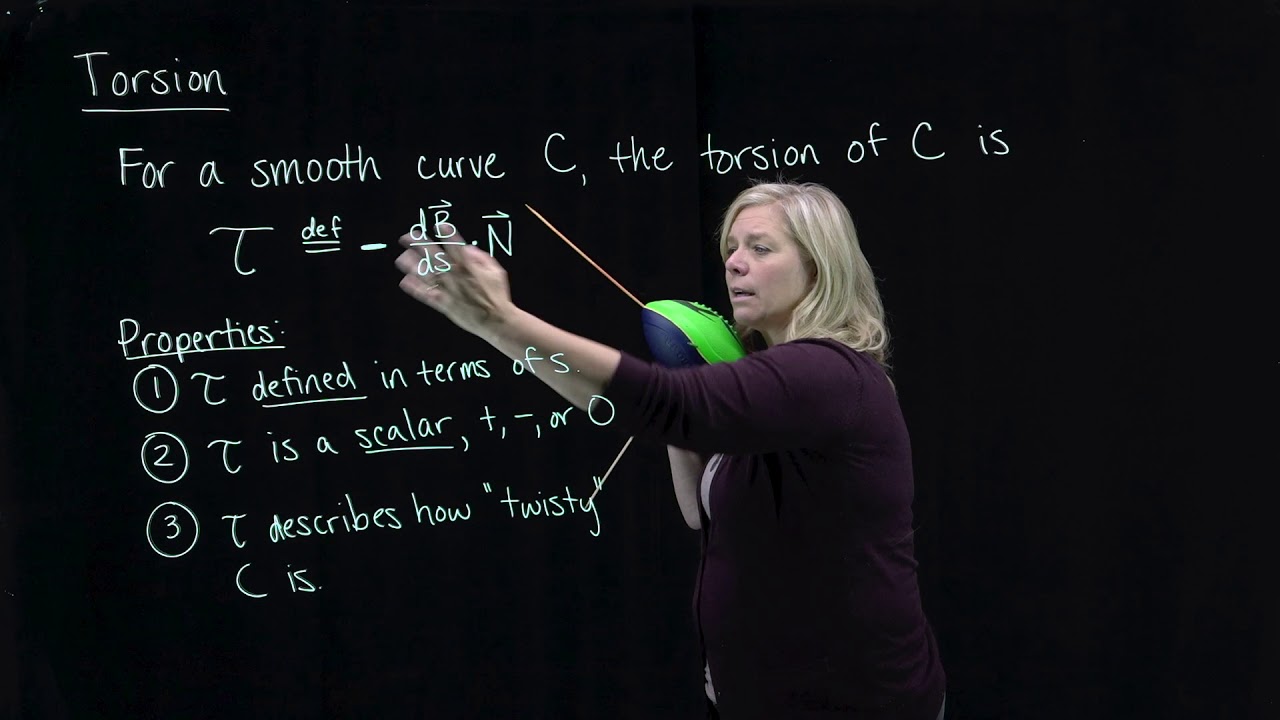 Torsion
For a smooth curve C, the torsion of C is
τ def = - dB⃗/ds · N⃗
Properties:
① τ defined in terms of s.
② τ is a scalar, +, -, or 0
③ τ describes how "twisty"
C is.